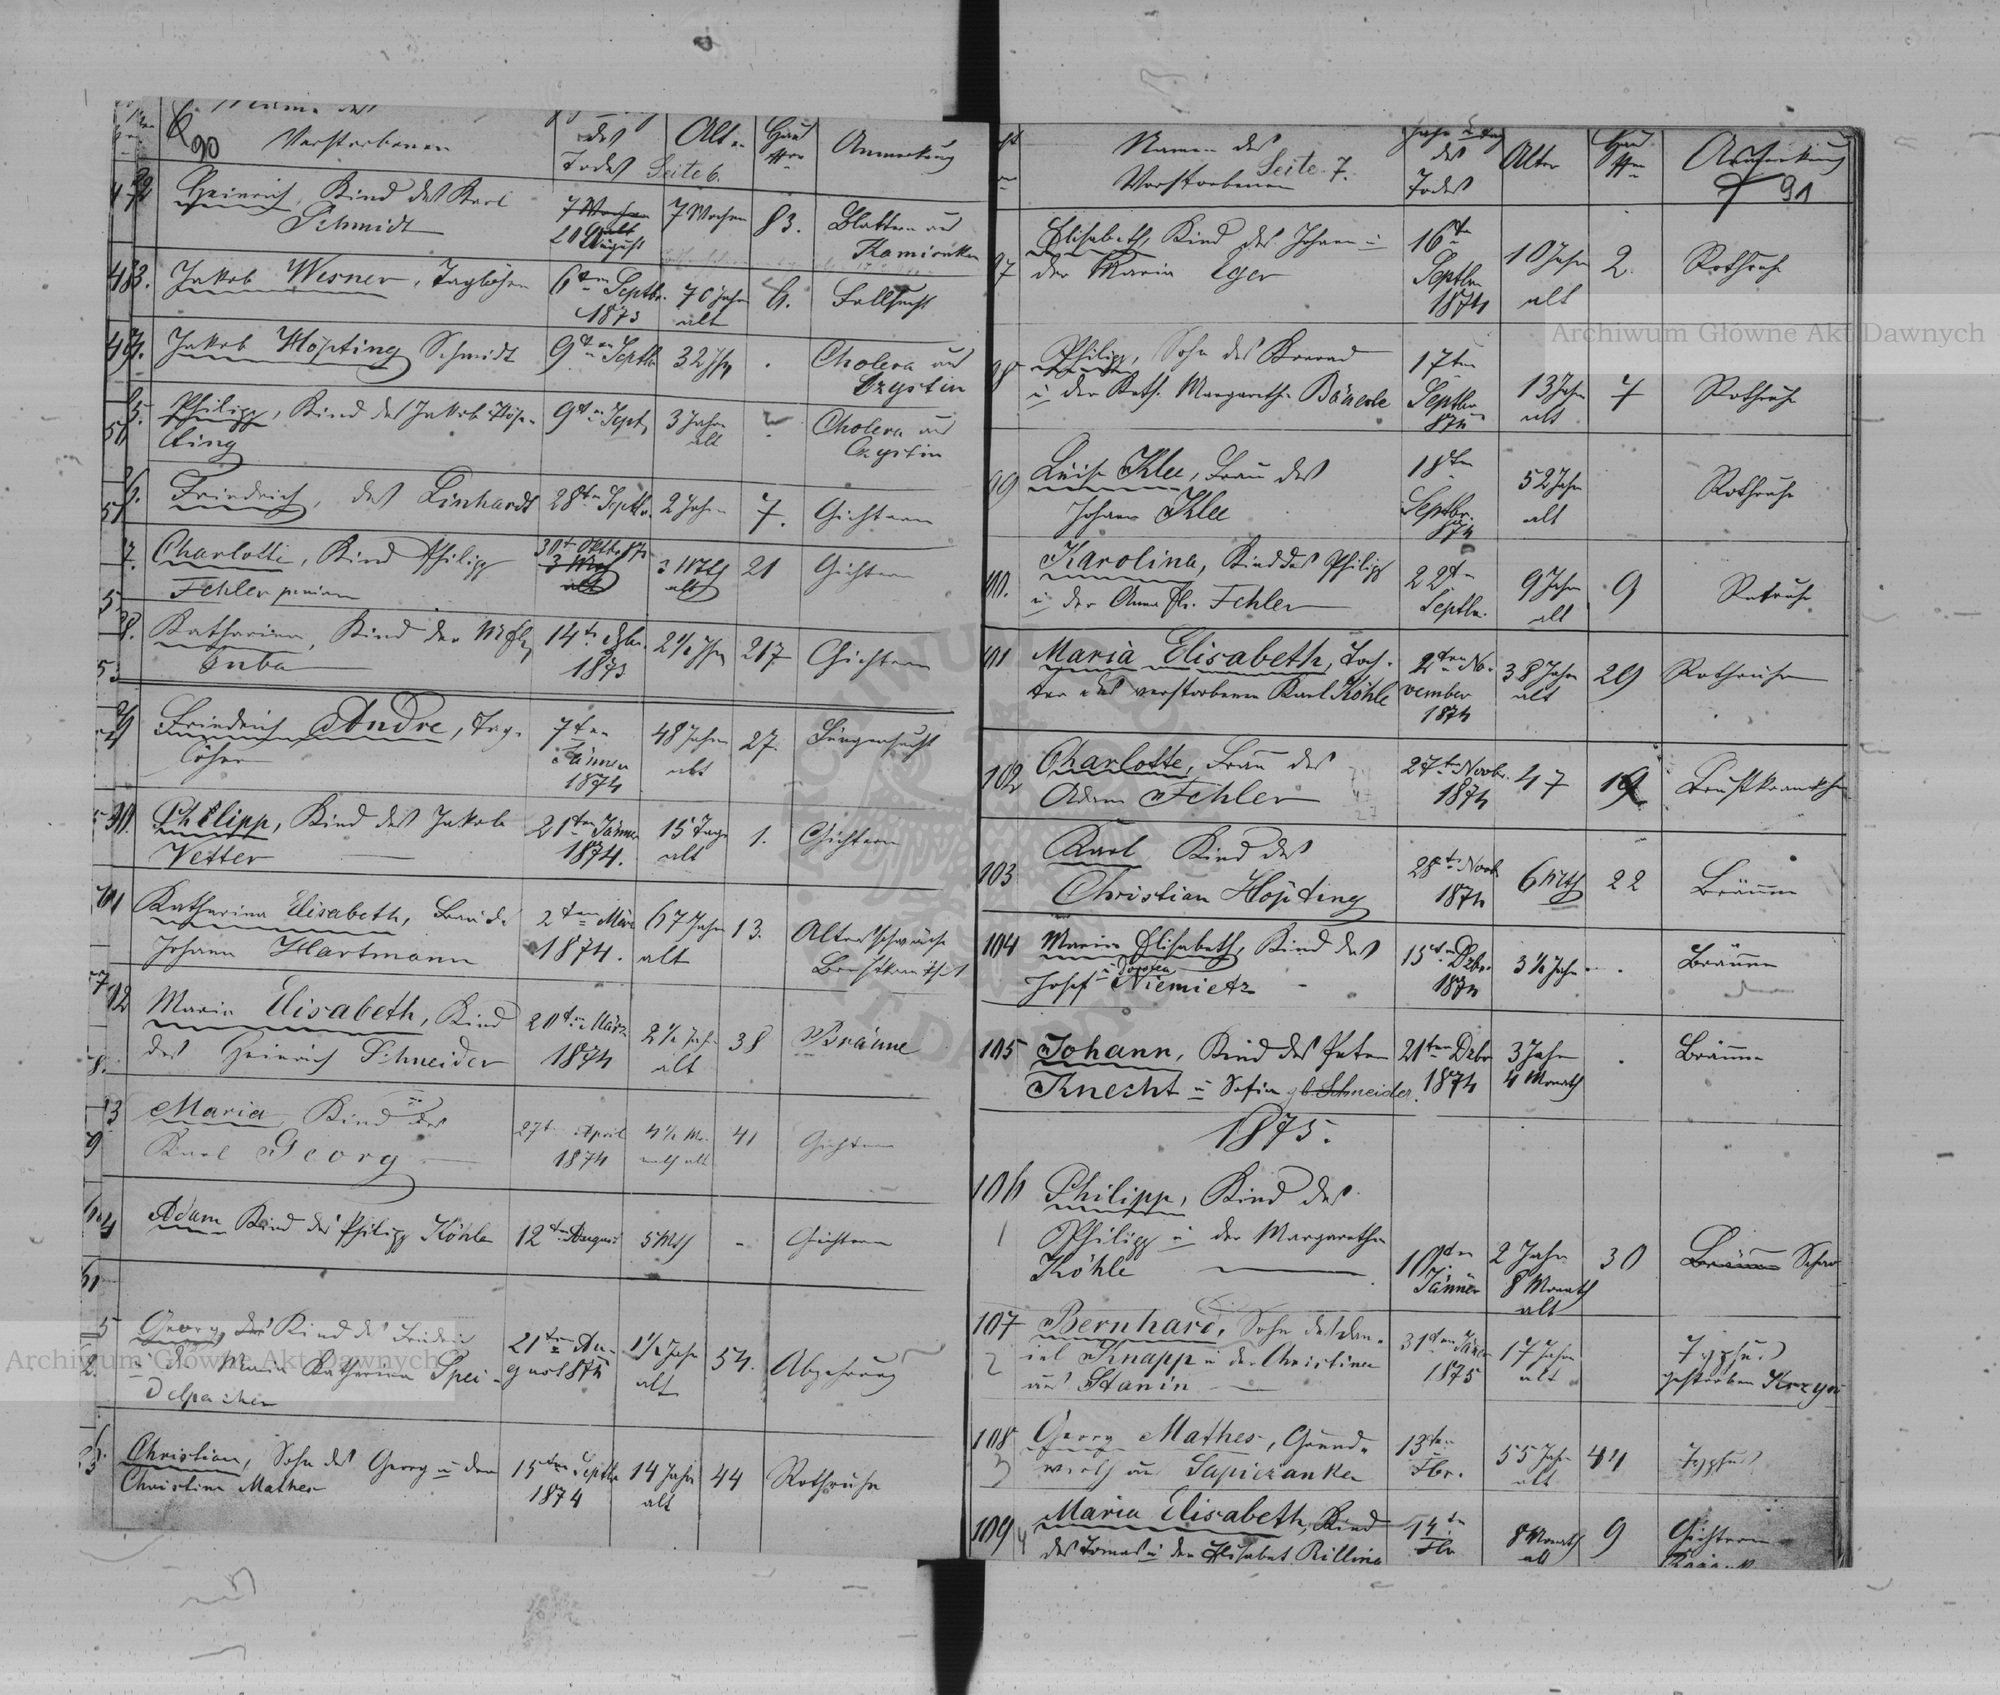 90
Namen des
Verstorbenen
des
Todes
Seite 6.
Alter
Haus
Nro
Anmerkung
Heinrich, Kind des Karl
Schmidt
7 Wochen
alt
20 August
7 Wochen
83.
Blattern aus
Kamionka
83.
Jakob Wesner, Taglöhner
6ten Septbr.
1873
70 Jahre
alt
6.
Fallsucht
Jakob Höpting Schmidt
9ten Septb
32 Jhr
Cholera aus
85.
Philipp, Kind des Jakob Höp-
ting
9ten Sept
3 Jahre
alt
Cholera aus
6.
Friedrich, des Linhardt
28ten Septbr.
2 Jahre
7.
Gichtern
7.
Charlotte, Kind Philipp
Fehler
30t Oktb 873
3 Mth
alt
3 Mth
alt
21
Gichtern
8.
Katharina, Kind der
Kuba
14te
1873
2½ Jhr
217
Gichtern
Friedrich Andre, Tag-
löhner
7ten
Jänner
1874
48 Jahre
alt
27.
Lungensucht
90.
Philipp, Kind des Jakob
Vetter
21ten Jänner
1874.
15 Tage
alt
1.
Gichtern
91
Katharina Elisabeth, Frau des
Johann Hartmann
2ten März
1874.
67 Jahre
alt
13.
Altersschwäche
92
Maria Elisabeth, Kind
des Heinrich Schneider
20ten März
1874
2½ Jahr
alt
38
Bräune
93
Maria Kind des
Karl Georg
27t April
1874
4½ Mo-
nath alt
41
Gichtern
94
Adam Kind des Philipp Köhle
12ten August
5 Mth
-
Gichtern
5
Georg, des Kind des Friedrich
u der Maria Katharina Spei-
delpacher
21ten Au-
gust 874
1½ Jahr
alt
54.
Abzehrung
6.
Christian, Sohn des Georg u der
Christina Mathes
15ten Septbr
1874
14 Jahre
alt
44
Rothruhr
Namen des
Verstorbenen
Seite 7.
Jahr u Tag
des
Todes
Alter
Haus
Nro
Anmerkung
91
97
Elisabeth, Kind des Johann u
der Maria Eger
16ten
Septbr
1874
10 Jahre
alt
2.
Rothruhr
98
Philipp, Sohn des Konrad
u der Kath. Margaretha Bäuerle
17ten
Septbr
874
13 Jahre
alt
7
Rothruhr
99
Luise Klee, Frau des
Johann Klee
18ten
Septbr.
874
52 Jahre
alt
Rothruhr
100.
Karolina, Kind des Philipp
u der Anna El. Fehler
22ten
Septbr.
9 Jahre
alt
9
Rotruhr
101
Maria Elisabeth, Toch-
ter des verstorbenen Karl Köhle
2ten No-
vember
1874
38 Jahre
alt
29
Rothruhr
102
Charlotte, Frau des
Adam Fehler
27ten Novbr.
1874
47
19
Brustkrankheit
103
Karl Kind des
Christian Höpting
28te Novb
1874
6 Mth
22
Bräune
104
Maria Elisabeth, Kind des
u Dorotea
Josef Niemietz
15ten Dzbr.
1874
3½ Jahr
Bräune
105
Johann, Kind des Peter
Knecht u Sofia gb. Schneider.
21ten Dzbr
1874
3 Jahr
4 Monath
Bräune
1875.
106
1
Philipp, Kind des
Philipp u der Margaretha
Köhle
10ten
Jänner
2 Jahr
8 Monath
alt
30
Bräune
107
2
Bernhard, Sohn des Dan-
iel Knapp u der Christina
aus Stanin
31ten Jän
1875
17 Jahre
alt
Typhus
gestorben
108
3
Georg Mathes, Grund-
wirth aus Sapiezanka
13ten
Fbr.
55 Jahr
alt
44
Typhus
109
4
Maria Elisabeth, Kind
des Tomas u der Elisabet Rilling
14ten
Fbr
8 Monath
alt
9
Gichtern
Archiwum Główne Akt Dawnych
Archiwum Główne Akt Dawnych